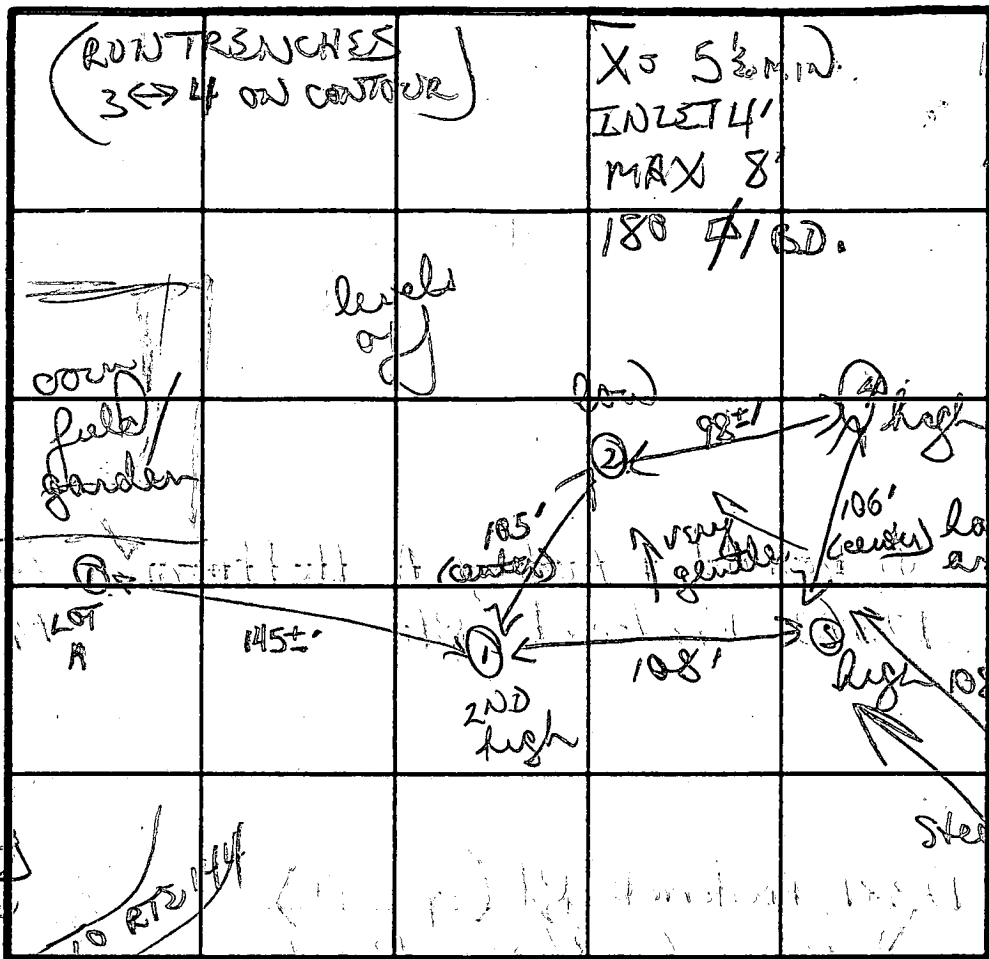 (RUN TRENCHES
3 ↔ 4 ON CONTOUR)
X = 5½ min.
INLET 4'
MAX 8'
180 /BD.
levels
off
corn
field
garden
low
②
98±'
④
high
105'
(center)
very
gentle
106'
(center)
①
LOT
A
145±'
①
2ND
high
108'
③
high
108
TO RTE 144